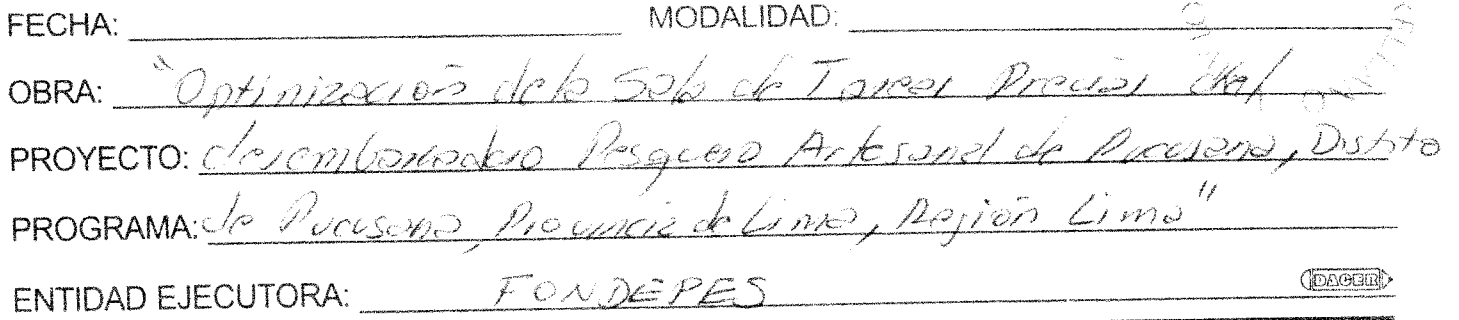 FECHA: MODALIDAD:
OBRA: "Optinización de la Sala de Tareas Previas del
PROYECTO: desembarcadero Pesquero Artesanal de Pucusana, Distrito
PROGRAMA: de Pucusana, Provincia de Lima, Región Lima"
ENTIDAD EJECUTORA: FONDEPES
DACER